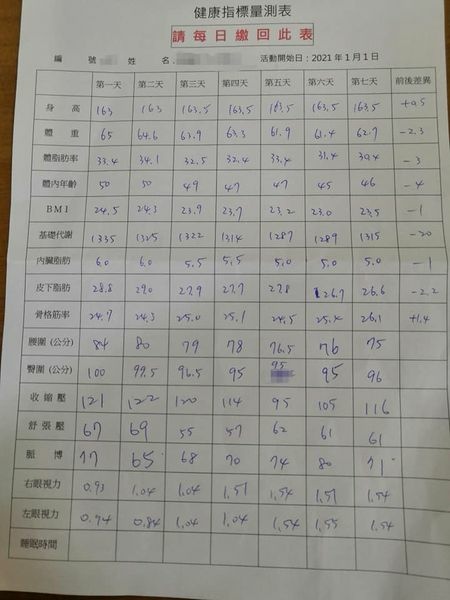 健康指標量測表
請每日繳回此表
編 號 姓 名: 活動開始日:2021 年 1 月 1 日
第一天 第二天 第三天 第四天 第五天 第六天 第七天 前後差異
身 高 163 163 163.5 163.5 163.5 163.5 163.5 +0.5
體 重 65 64.6 63.9 63.3 61.9 61.4 62.7 -2.3
體脂肪率 33.4 34.1 32.5 32.4 33.4 31.4 30.4 -3
體內年齡 50 50 49 47 47 45 46 -4
BMI 24.5 24.3 23.9 23.7 23.2 23.0 23.5 -1
基礎代謝 1335 1325 1322 1314 1287 1289 1315 -20
內臟脂肪 6.0 6.0 5.5 5.5 5.0 5.0 5.0 -1
皮下脂肪 28.8 29.0 27.9 27.7 27.8 26.7 26.6 -2.2
骨格筋率 24.7 24.3 25.0 25.1 24.5 26.1 +1.4
腰圍(公分) 84 80 79 78 76.5 76 75
臀圍(公分) 100 99.5 96.5 95 95 95 96
收縮壓 121 122 120 114 95 105 116
舒張壓 67 69 55 57 62 61 61
脈 博 77 65 68 70 74 80 71
右眼視力 0.93 1.04 1.04 1.51 1.54 1.51 1.54
左眼視力 0.94 0.84 1.04 1.04 1.54 1.55 1.54
睡眠時間